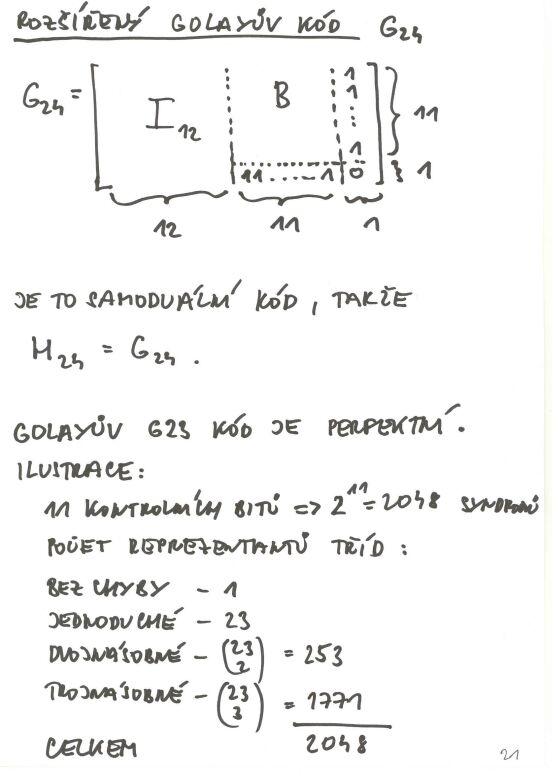 ROZŠÍŘENÝ GOLAYŮV KÓD G24
G24 = [ I12 B 1 1 ⋮ 1 ] } 11
11.....1 0 } 1
12 11 1
JE TO SAMODUÁLNÍ KÓD, TAKŽE
H24 = G24 .
GOLAYŮV G23 KÓD JE PERFEKTNÍ.
ILUSTRACE:
11 KONTROLNÍCH BITŮ => 2^11 = 2048 SYNDROMŮ
POČET REPREZENTANTŮ TŘÍD :
BEZ CHYBY - 1
JEDNODUCHÉ - 23
DVOJNÁSOBNÉ - (23 2) = 253
TROJNÁSOBNÉ - (23 3) = 1771
CELKEM 2048
21